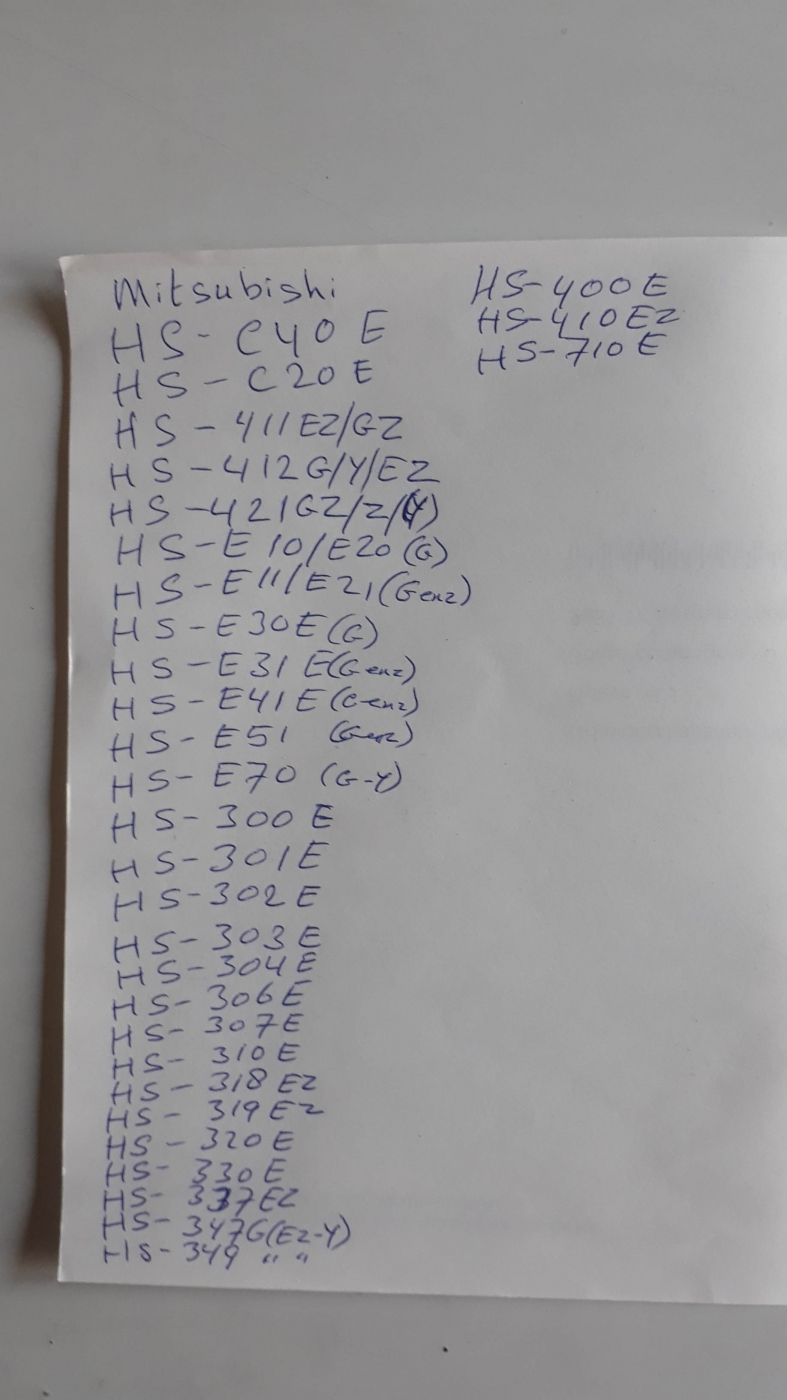 Mitsubishi
HS-C40E
HS-C20E
HS-411EZ/GZ
HS-412G/Y/EZ
HS-421GZ/Z/(Y)
HS-E10/E20(G)
HS-E11/E21(Genz)
HS-E30E(G)
HS-E31E(Genz)
HS-E41E(Genz)
HS-E51 (Genz)
HS-E70 (G-Y)
HS-300E
HS-301E
HS-302E
HS-303E
HS-304E
HS-306E
HS-307E
HS-310E
HS-318EZ
HS-319EZ
HS-320E
HS-330E
HS-337EZ
HS-347G(EZ-Y)
HS-349 " "
HS-400E
HS-410EZ
HS-710E